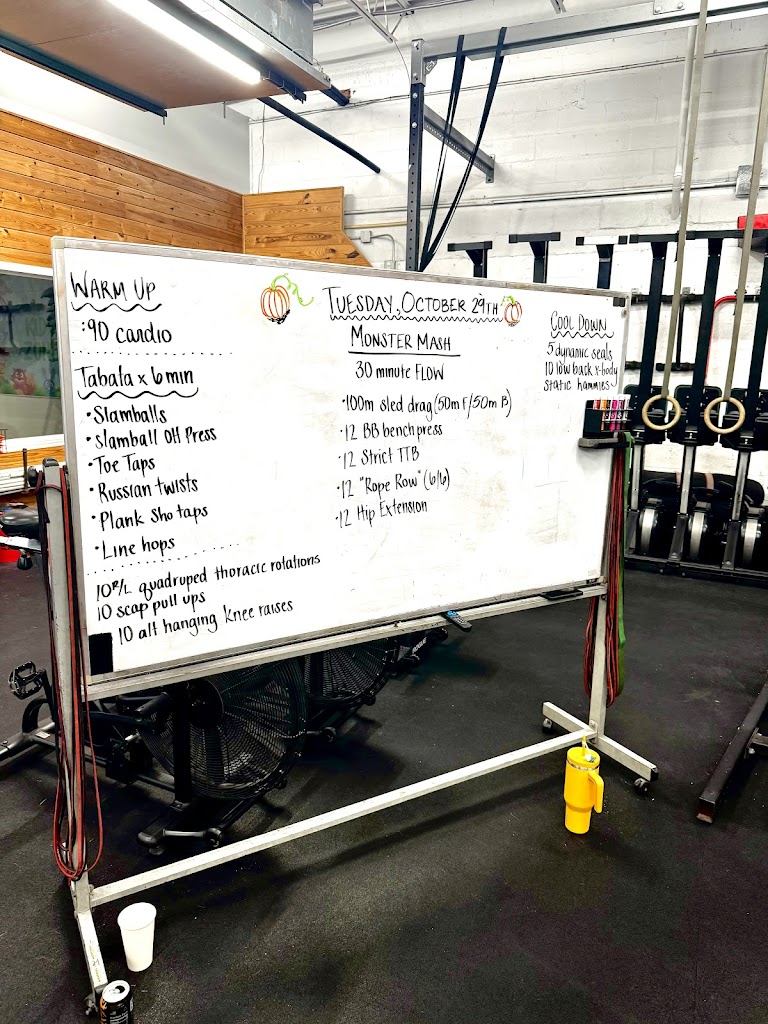 WARM UP
:90 cardio
Tabata x 6 min
• Slamballs
• slamball OH Press
• Toe Taps
• Russian twists
• Plank Sho taps
• Line hops
10 R/L quadruped thoracic rotations
10 scap pull ups
10 alt hanging knee raises
TUESDAY, OCTOBER 29TH
MONSTER MASH
30 minute FLOW
• 100m sled drag (50m F/50m B)
• 12 BB bench press
• 12 Strict TTB
• 12 "Rope Row" (6/6)
• 12 Hip Extension
COOL DOWN
5 dynamic seals
10 low back x-body
static hammies